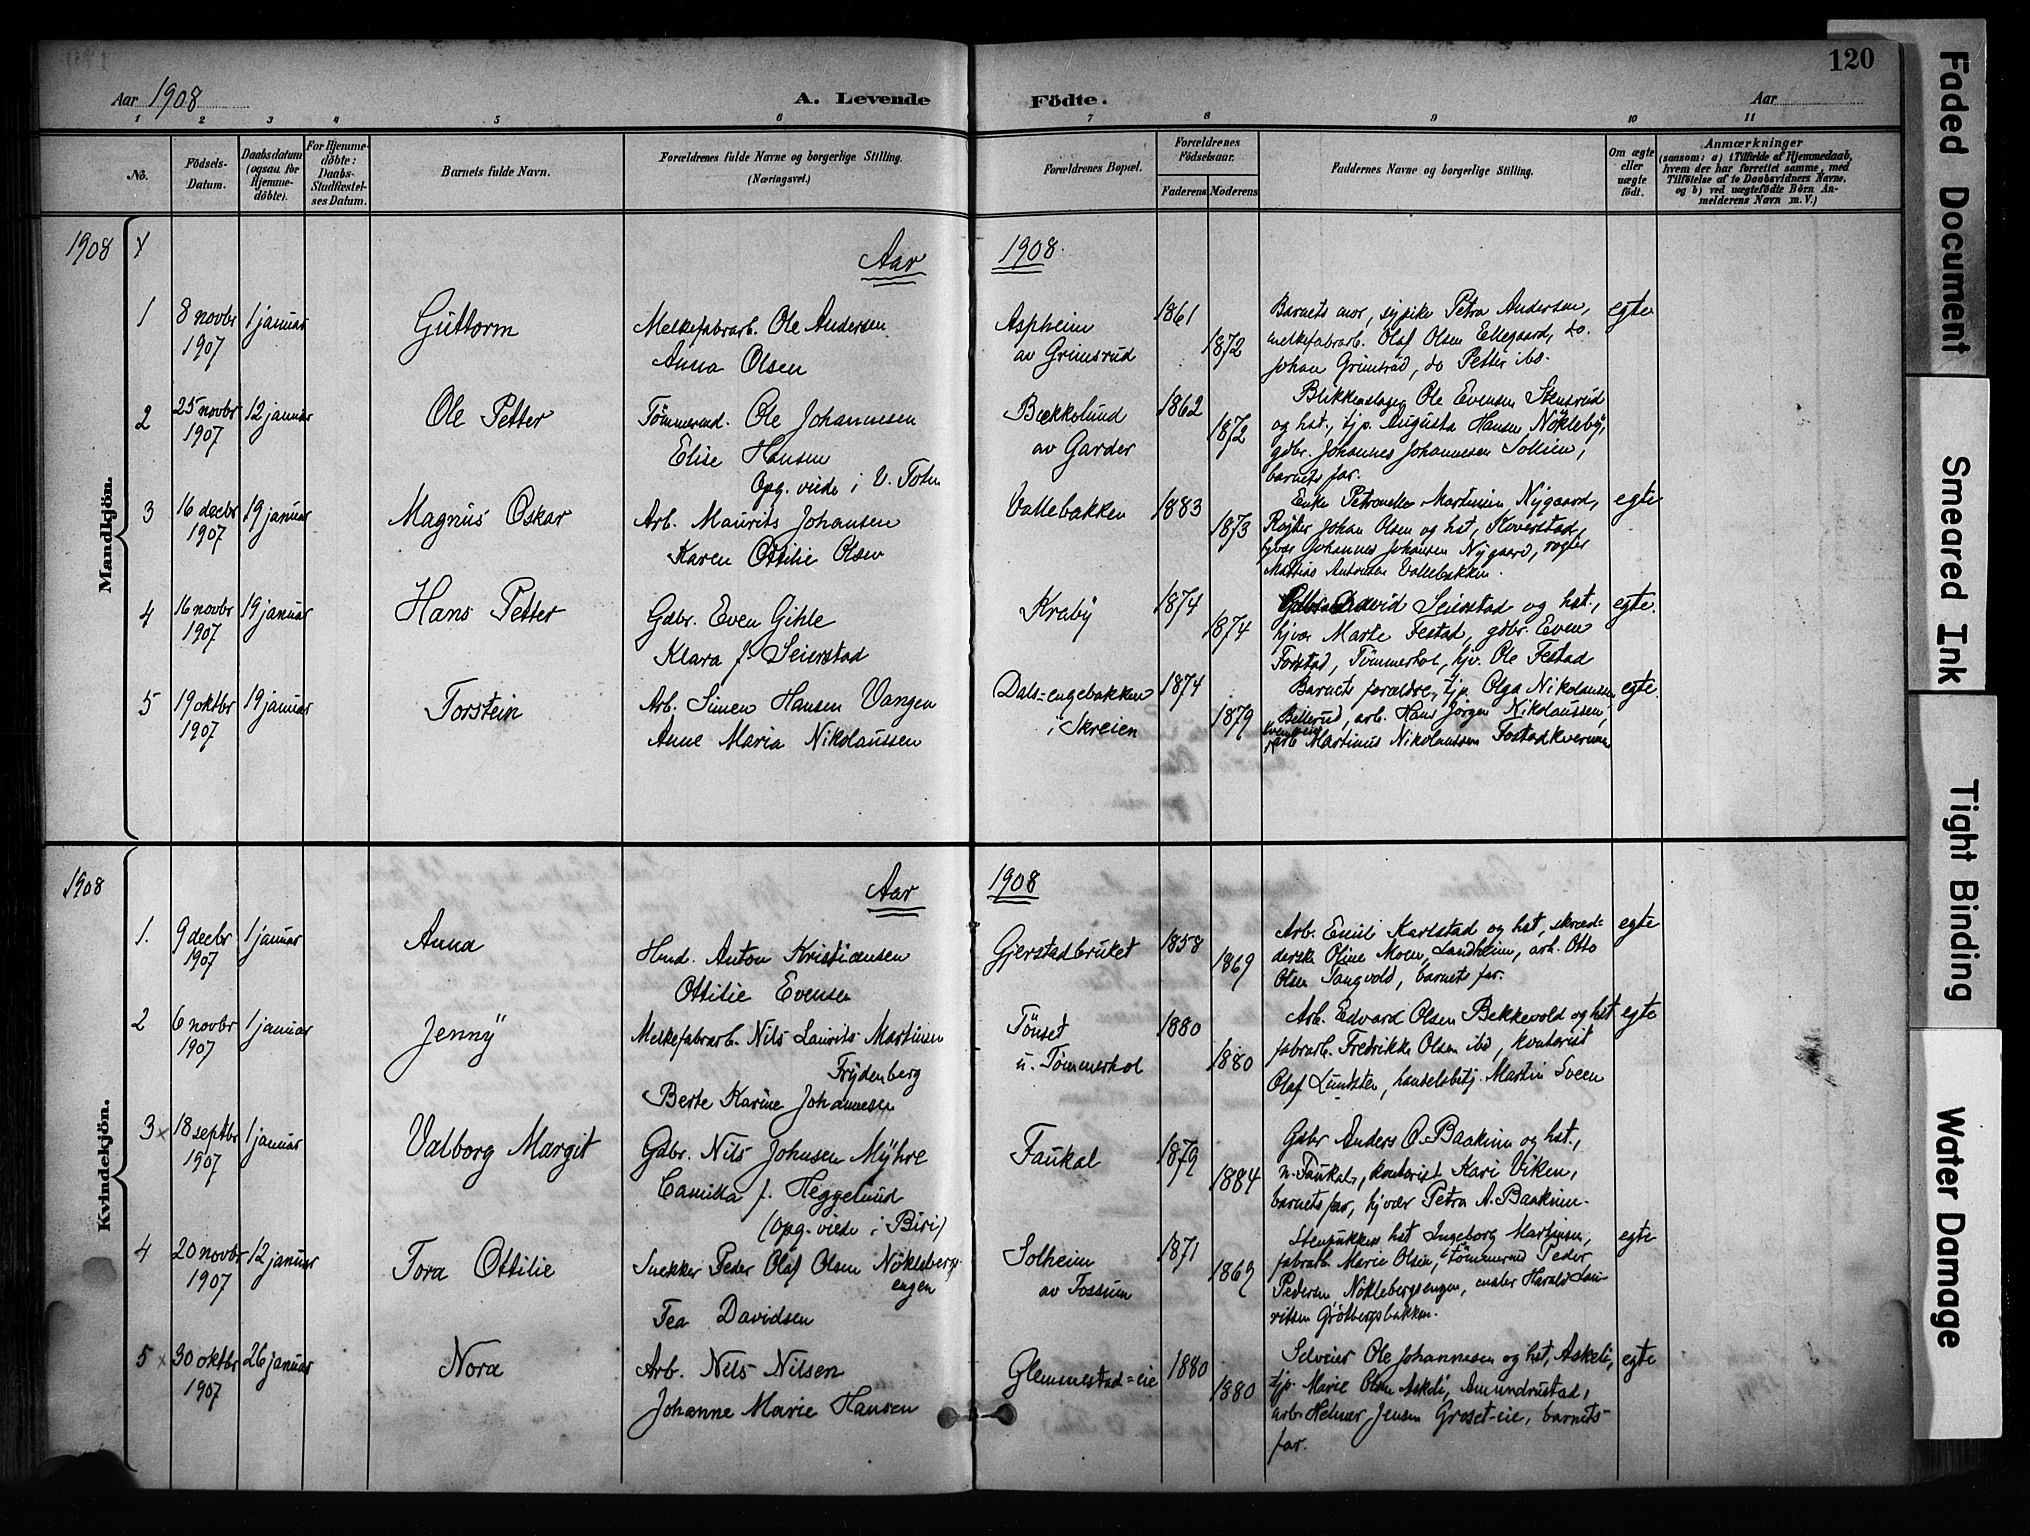 120
Aar 1908
A. Levende Födte.
Aar
1 2 3 4 5 6 7 8 9 10 11
No.
Födsels-Datum.
Daabsdatum (ogsaa for Hjemmedöbte).
For Hjemmedöbte: Daabs-Stadfæstelses Datum.
Barnets fulde Navn.
Forældrenes fulde Navne og borgerlige Stilling. (Næringsvei.)
Forældrenes Bopæl.
Forældrenes Födselsaar.
Faderens. Moderens.
Faddernes Navne og borgerlige Stilling.
Om ægte eller uægte födt.
Anmærkninger
(saasom: a) i Tilfælde af Hjemmedaab, hvem der har forrettet samme, med Tilföielse af to Daabsvidners Navne, og b) ved uægtefödte Börn Anmelderens Navn m. V.)
Mandkjön.
1908
Aar 1908
1 8 novbr 1907 1 januar Guttorm
Melkefabrarb. Ole Andersen
Anna Olsen
Aspheim
av Grimsrud
1861 1872
Barnets mor, sypike Petra Andersen,
melkefabrarb. Olaf Olsen Ellegaard, do.
Johan Grimsrud, do Petter ibs.
egte
2 25 novbr 1907 12 januar Ole Petter
Tømmermd. Ole Johannessen
Elise Hansen
Opg. viede i V. Toten
Bækkelund
av Garder
1862 1872
Blikkenslager Ole Evensen Stensrud
og hst., tjp. Augusta Hansen Nökleby,
gdbr. Johannes Johannesen Sollien,
barnets far.
3 16 decbr 1907 19 januar Magnus Oskar
Arb. Maurits Johansen
Karen Ottilie Olsen
Vallebakken
1883 1873
Enke Petronelle Martinsen Nygaard,
Røgter Johan Olsen og hst, Koverstad,
Johannes Johansen Nygaard, røgter
Mattias Antonsen Vallebakken.
egte
4 16 novbr 1907 19 januar Hans Petter
Gdbr. Even Gihle
Klara f. Seierstad
Kraby
1874 1874
David Seierstad og hst.,
hjvær Marte Festad, gdbr. Even
Forstad, Tömmerhol, hjv. Ole Festad
egte.
5 19 oktbr 1907 19 januar Torstein
Arb. Simen Hansen Vangen
Anne Maria Nikolaussen
Dals=engebakken
i Skreien
1874 1879
Barnets forældre, tjp. Olga Nikolausen
Billerud, arb. Hans Jörgen Nikolaussen,
arb Martinus Nikolaussen Fostadkvernen
egte.
Kvindekjön.
1908
Aar 1908
1. 9 decbr 1907 1 januar Anna
Hmd. Anton Kristiansen
Ottilie Evensen
Gjerstadbruket
1858 1869
Arb. Emil Karlstad og hst, skræd-
derske Oline Moen, Landheim, arb. Otto
Olsen Tangvold, barnets far.
egte
2 6 novbr 1907 1 januar Jenny
Melkefabrarb. Nils Laurits Martinsen
Frydenberg
Berte Karine Johannesen
Tönset
u. Tømmerhol
1880 1880
Arb. Edvard Olsen Bekkevold og hst
fabrarb. Fredrikke Olsen ibd, kontorist
Olaf Lundsten, handelsbitj. Martin Sveen
egte
3 x 18 septbr 1907 1 januar Valborg Margit
Gdbr. Nils Johnsen Myhre
Camilla f. Heggelund
(opg. viede i Biri)
Faukal
1879 1884
Gdbr Anders O. Baakinn og hst.,
n. Faukal, kontorist Kari Viken,
barnets far, hjvær Petra A. Baakinn.
4 20 novbr 1907 12 januar Tora Ottilie
Snekker Peder Olaf Olsen Nöklebergs-
engen
Tea Davidsen
Solheim
av Fossum
1871 1869
Stenpukkers hst Ingeborg Martinsen,
fabrarb Marie Olsen, tømmermd Peder
Pedersen Nöklebergsengen, maler Harald Lau-
ritsen Grötbergsbakken.
egte
5 x 30 oktbr 1907 26 januar Nora
Arb. Nils Nilsen
Johanne Marie Hansen
Glemmestad=eie
1880 1880
Selveier Ole Johannesen og hst, Askeli,
tjp. Marie Olsen Askeli, Amundrustad,
arb. Helmer Jensen Groset-eie, barnets
far.
egte
Faded Document
Smeared Ink
Tight Binding
Water Damage